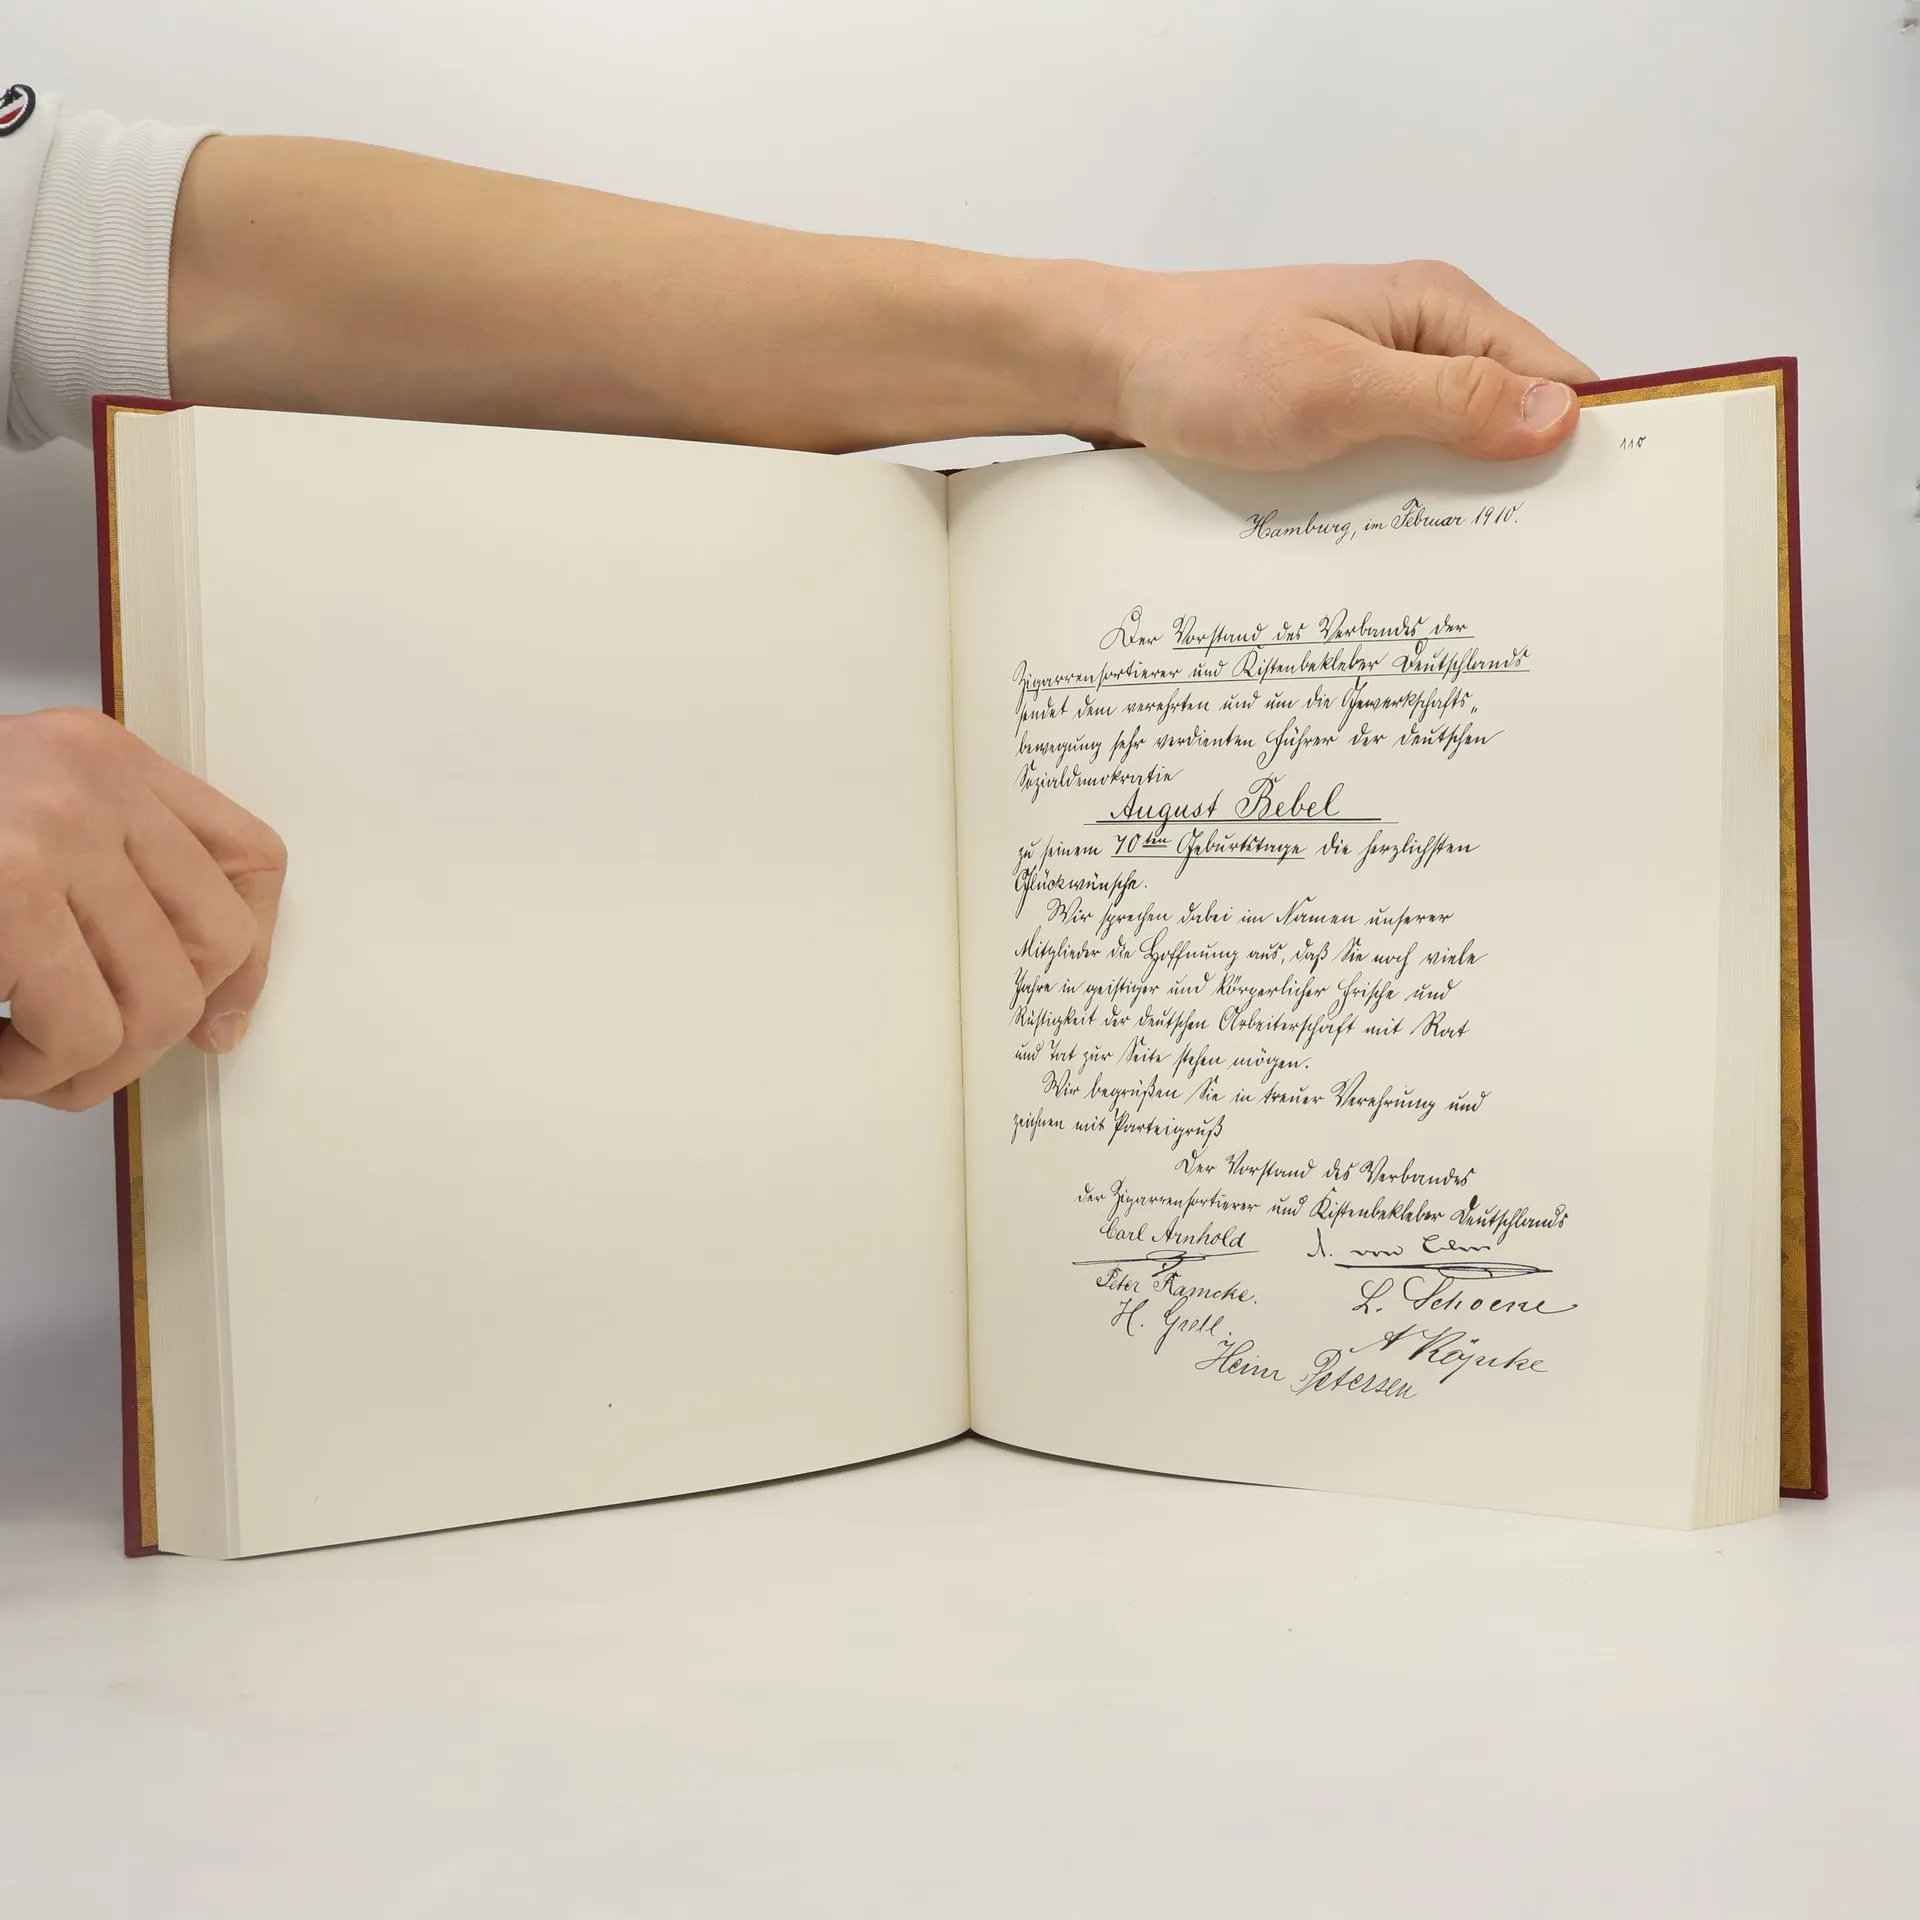 110
Hamburg, im Februar 1910.
Der Vorstand des Verbandes der
Zigarrensortierer und Kistenbekleber Deutschlands
sendet dem verehrten und um die Gewerkschafts„
bewegung sehr verdienten Führer der deutschen
Sozialdemokratie
August Bebel
zu seinem 70ten Geburtstage die herzlichsten
Glückwünsche.
Wir sprechen dabei im Namen unserer
Mitglieder die Hoffnung aus, daß Sie noch viele
Jahre in geistiger und körperlicher Frische und
Rüstigkeit der deutschen Arbeiterschaft mit Rat
und Tat zur Seite stehen mögen.
Wir begrüßen Sie in treuer Verehrung und
zeichnen mit Parteigruß
Der Vorstand des Verbandes
der Zigarrensortierer und Kistenbekleber Deutschlands
Carl Arnhold A. von Elm
Peter Ramcke. L. Schoene
H. Grell. A Köpcke
Heinr Petersen